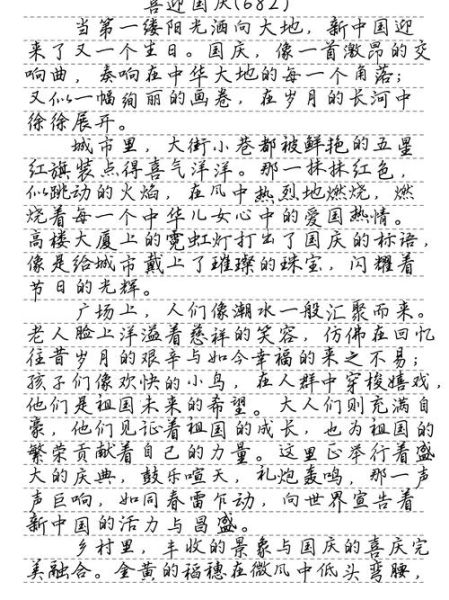 喜迎国庆(682)
当第一缕阳光洒向大地，新中国迎
来了又一个生日。国庆，像一首激昂的交
响曲，奏响在中华大地的每一个角落；
又似一幅绚丽的画卷，在岁月的长河中
徐徐展开。
城市里，大街小巷都被鲜艳的五星
红旗装点得喜气洋洋。那一抹抹红色，
似跳动的火焰，在风中热烈地燃烧，燃
烧着每一个中华儿女心中的爱国热情。
高楼大厦上的霓虹灯打出了国庆的标语，
像是给城市戴上了璀璨的珠宝，闪耀着
节日的光辉。
广场上，人们像潮水一般汇聚而来。
老人脸上洋溢着慈祥的笑容，仿佛在回忆
往昔岁月的艰辛与如今幸福的来之不易；
孩子们像欢快的小鸟，在人群中穿梭嬉戏，
他们是祖国未来的希望。大人们则充满自
豪，他们见证着祖国的成长，也为祖国的
繁荣贡献着自己的力量。这里正举行着盛
大的庆典，鼓乐喧天，礼炮轰鸣，那一声
声巨响，如同春雷乍动，向世界宣告着
新中国的活力与昌盛。
乡村里，丰收的景象与国庆的喜庆完
美融合。金黄的稻穗在微风中低头弯腰，